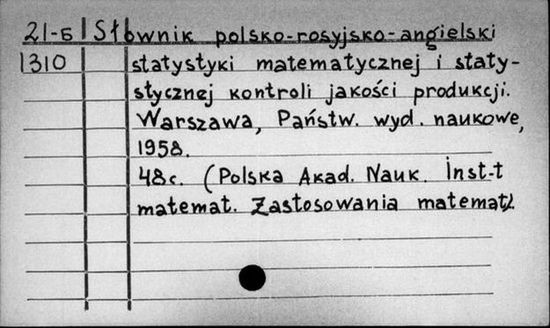 21-Б Słownik polsko-rosyjsko-angielski
1310 statystyki matematycznej i staty-
stycznej kontroli jakości produkcji.
Warszawa, Państw. wyd. naukowe,
1958.
48c. (Polska Akad. Nauk. Inst-t
matemat. Zastosowania matemat).